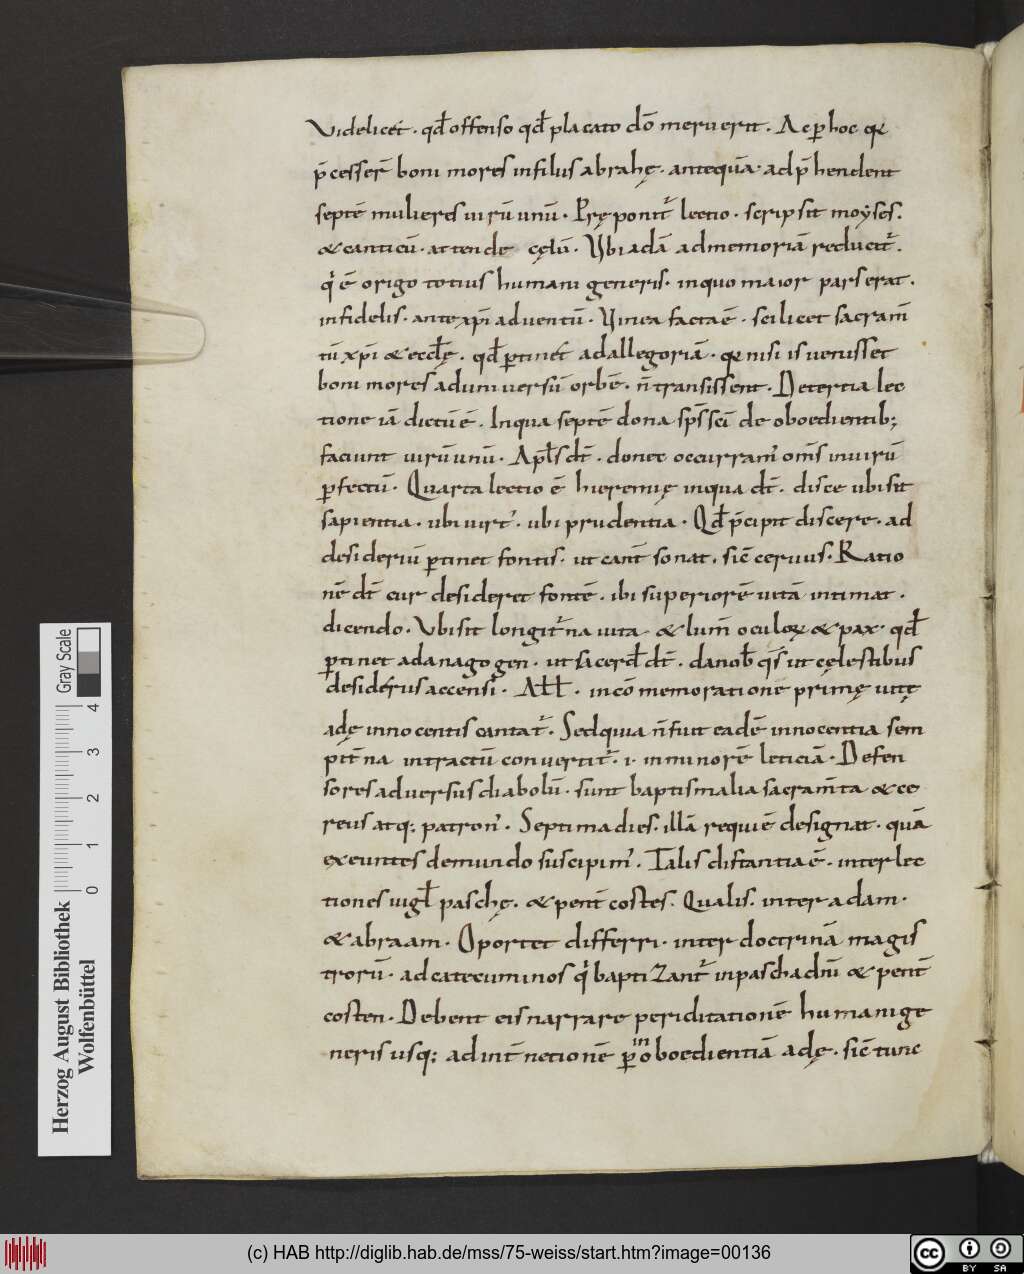 Videlicet · qđ offenso qđ placato dō meruerit · Ac p̱ hoc q&
p̄cesser̄ boni mores infilius abrahę · antequā · ad p̄hendent
septē mulieres uirū unū · Prę ponit᷑ lectio · scripsit moẏses ·
& canticū · attende cęlū · Ubi adā admemoriā reducit᷑ ·
q' ē origo totius humani generis · inquo maior pars erat ·
infidelis · ante xp̄i aduentū · Uinea facta ē · scilicet sacram̄
tū xp̄i & ecclę̄ · qđ p̱tinet adallegoriā · q& nisi is uenisset
boni mores aduniuersū orbē · n̄ transissent · De tertia lec
tione iā dictū ē · Inqua septē dona sp̄s sc̄i de oboedientib;
faciunt uirū unū · Apłs dt̄ · donec occurram' om̄s inuirū
p̱fectū · Quarta lectio ē hieremię inqua dt̄ · disce ubi sit
sapientia · ubi uirt' · ubi prudentia · Qđ p̄cipit discere · ad
desideriū p̱tinet fontis · ut cant̄ sonat · sic̄ ceruus · Ratio
nē dt̄ cur desideret fontē · ibi superiorē uitā intimat ·
dicendo · Ubi sit longit᷑na uita & lum̄ oculoꝝ & pax · qđ
p̱tinet adanagogen · ut sacerđ dt̄ · da nob̄ qs̄ ut cęlestibus
desideriis accensi · Ałł · incōmemoratione primę uitę
adę innocentis cantat᷑ · Sed quia n̄ fuit eadē innocentia sem
pit᷑na intractū conuertit᷑ · i · inminorē leticiā · Defen
sores aduersus diabolū · sunt baptismalia sacram̄ta & ce
reus atq; patron' · Septima dies · illā requiē designat · quā
exeuntes demundo suscipim' · Talis distantia ē · inter lec
tiones uigł paschę · & pent̄ costes · Qualis · inter adam ·
& abraam · Oportet differri · inter doctrinā magis
trorū · ad catecuminos q' baptizant᷑ inpascha dn̄i & pent̄
costen · Debent eis narrare periditationē humani ge
neris usq; ad int̄netionē p̱ inoboedientiā adę · sic̄ tunc
Gray Scale
4
3
2
1
0
Herzog August Bibliothek
Wolfenbüttel
(c) HAB http://diglib.hab.de/mss/75-weiss/start.htm?image=00136
cc BY SA